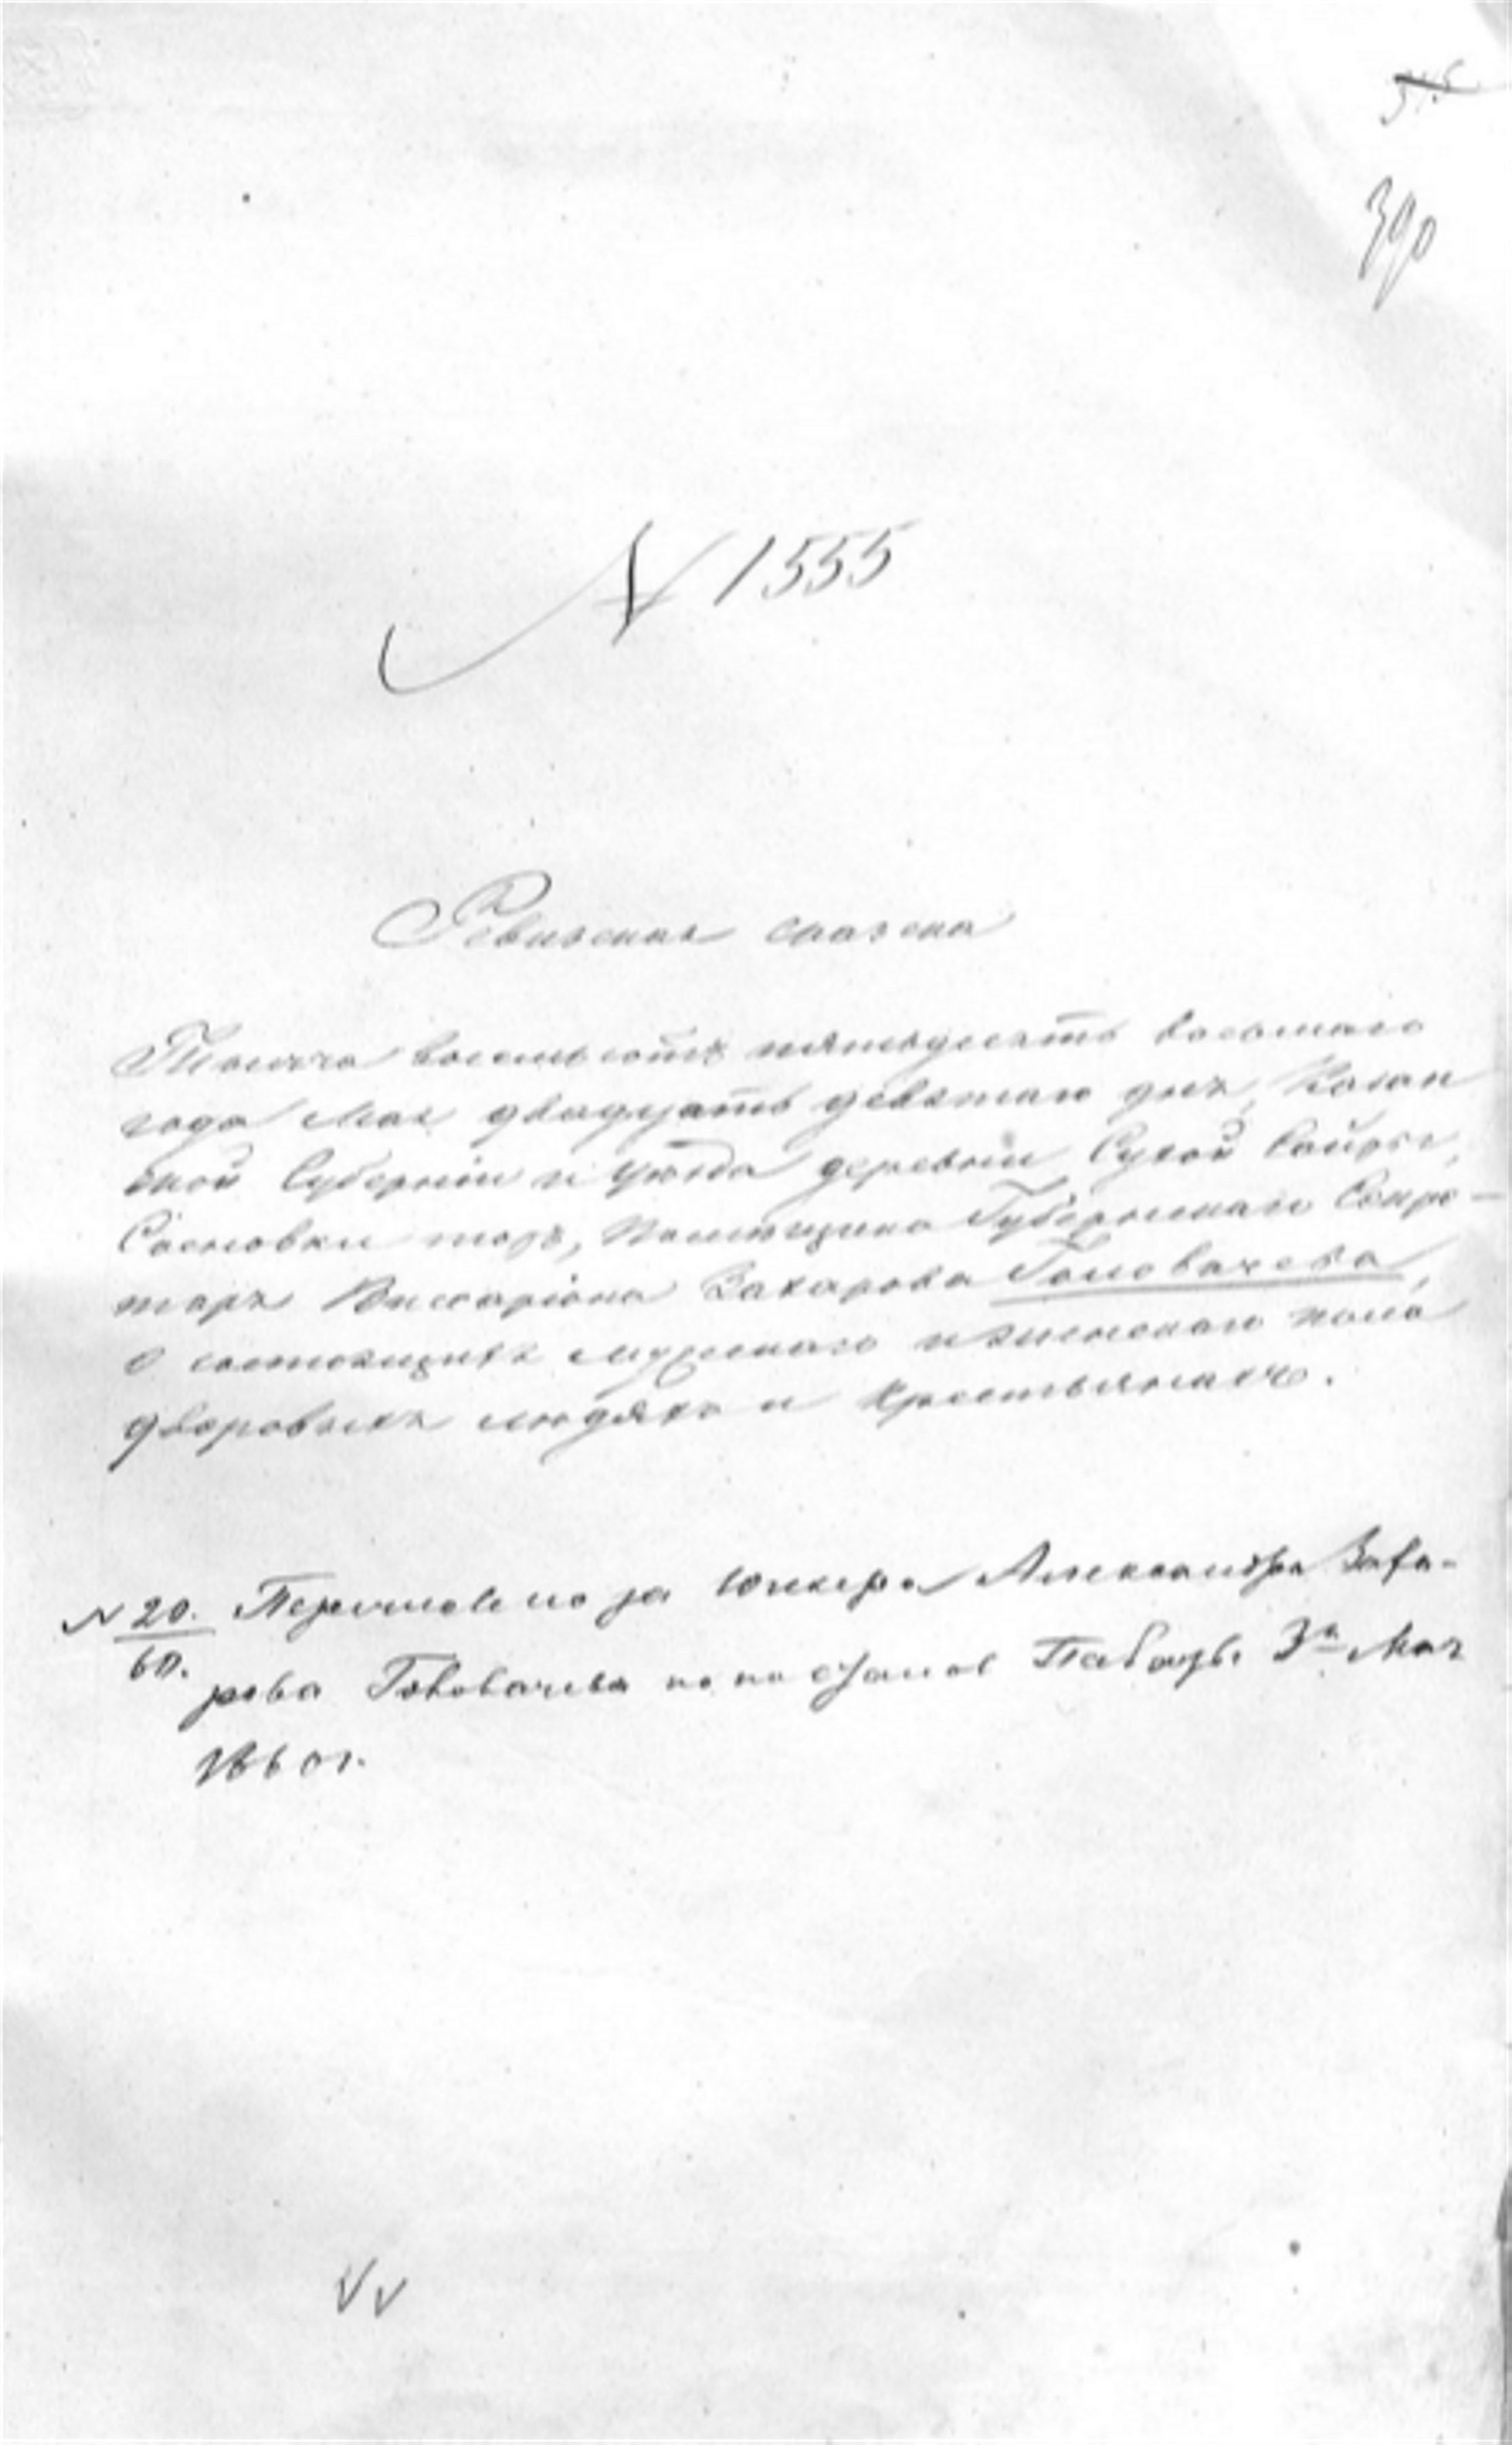 390
№ 1555
Ревизская сказка
Тысяча восемьсотъ пятьдесятъ восьмаго
года Мая двадцать девятаго дня, Казан
ской Губерніи и уѣзда деревни Сухой
Сосновки тожъ, Помѣщика Губернскаго Секре-
таря Виссаріона Захарова Головачева,
о состоящихъ мужескаго и женскаго пола
дворовыхъ людяхъ и крестьянахъ.
№ 20. Перечислено за Юнкера Александра Заха-
60.
рова Головачева 3го Мая
1860 г.